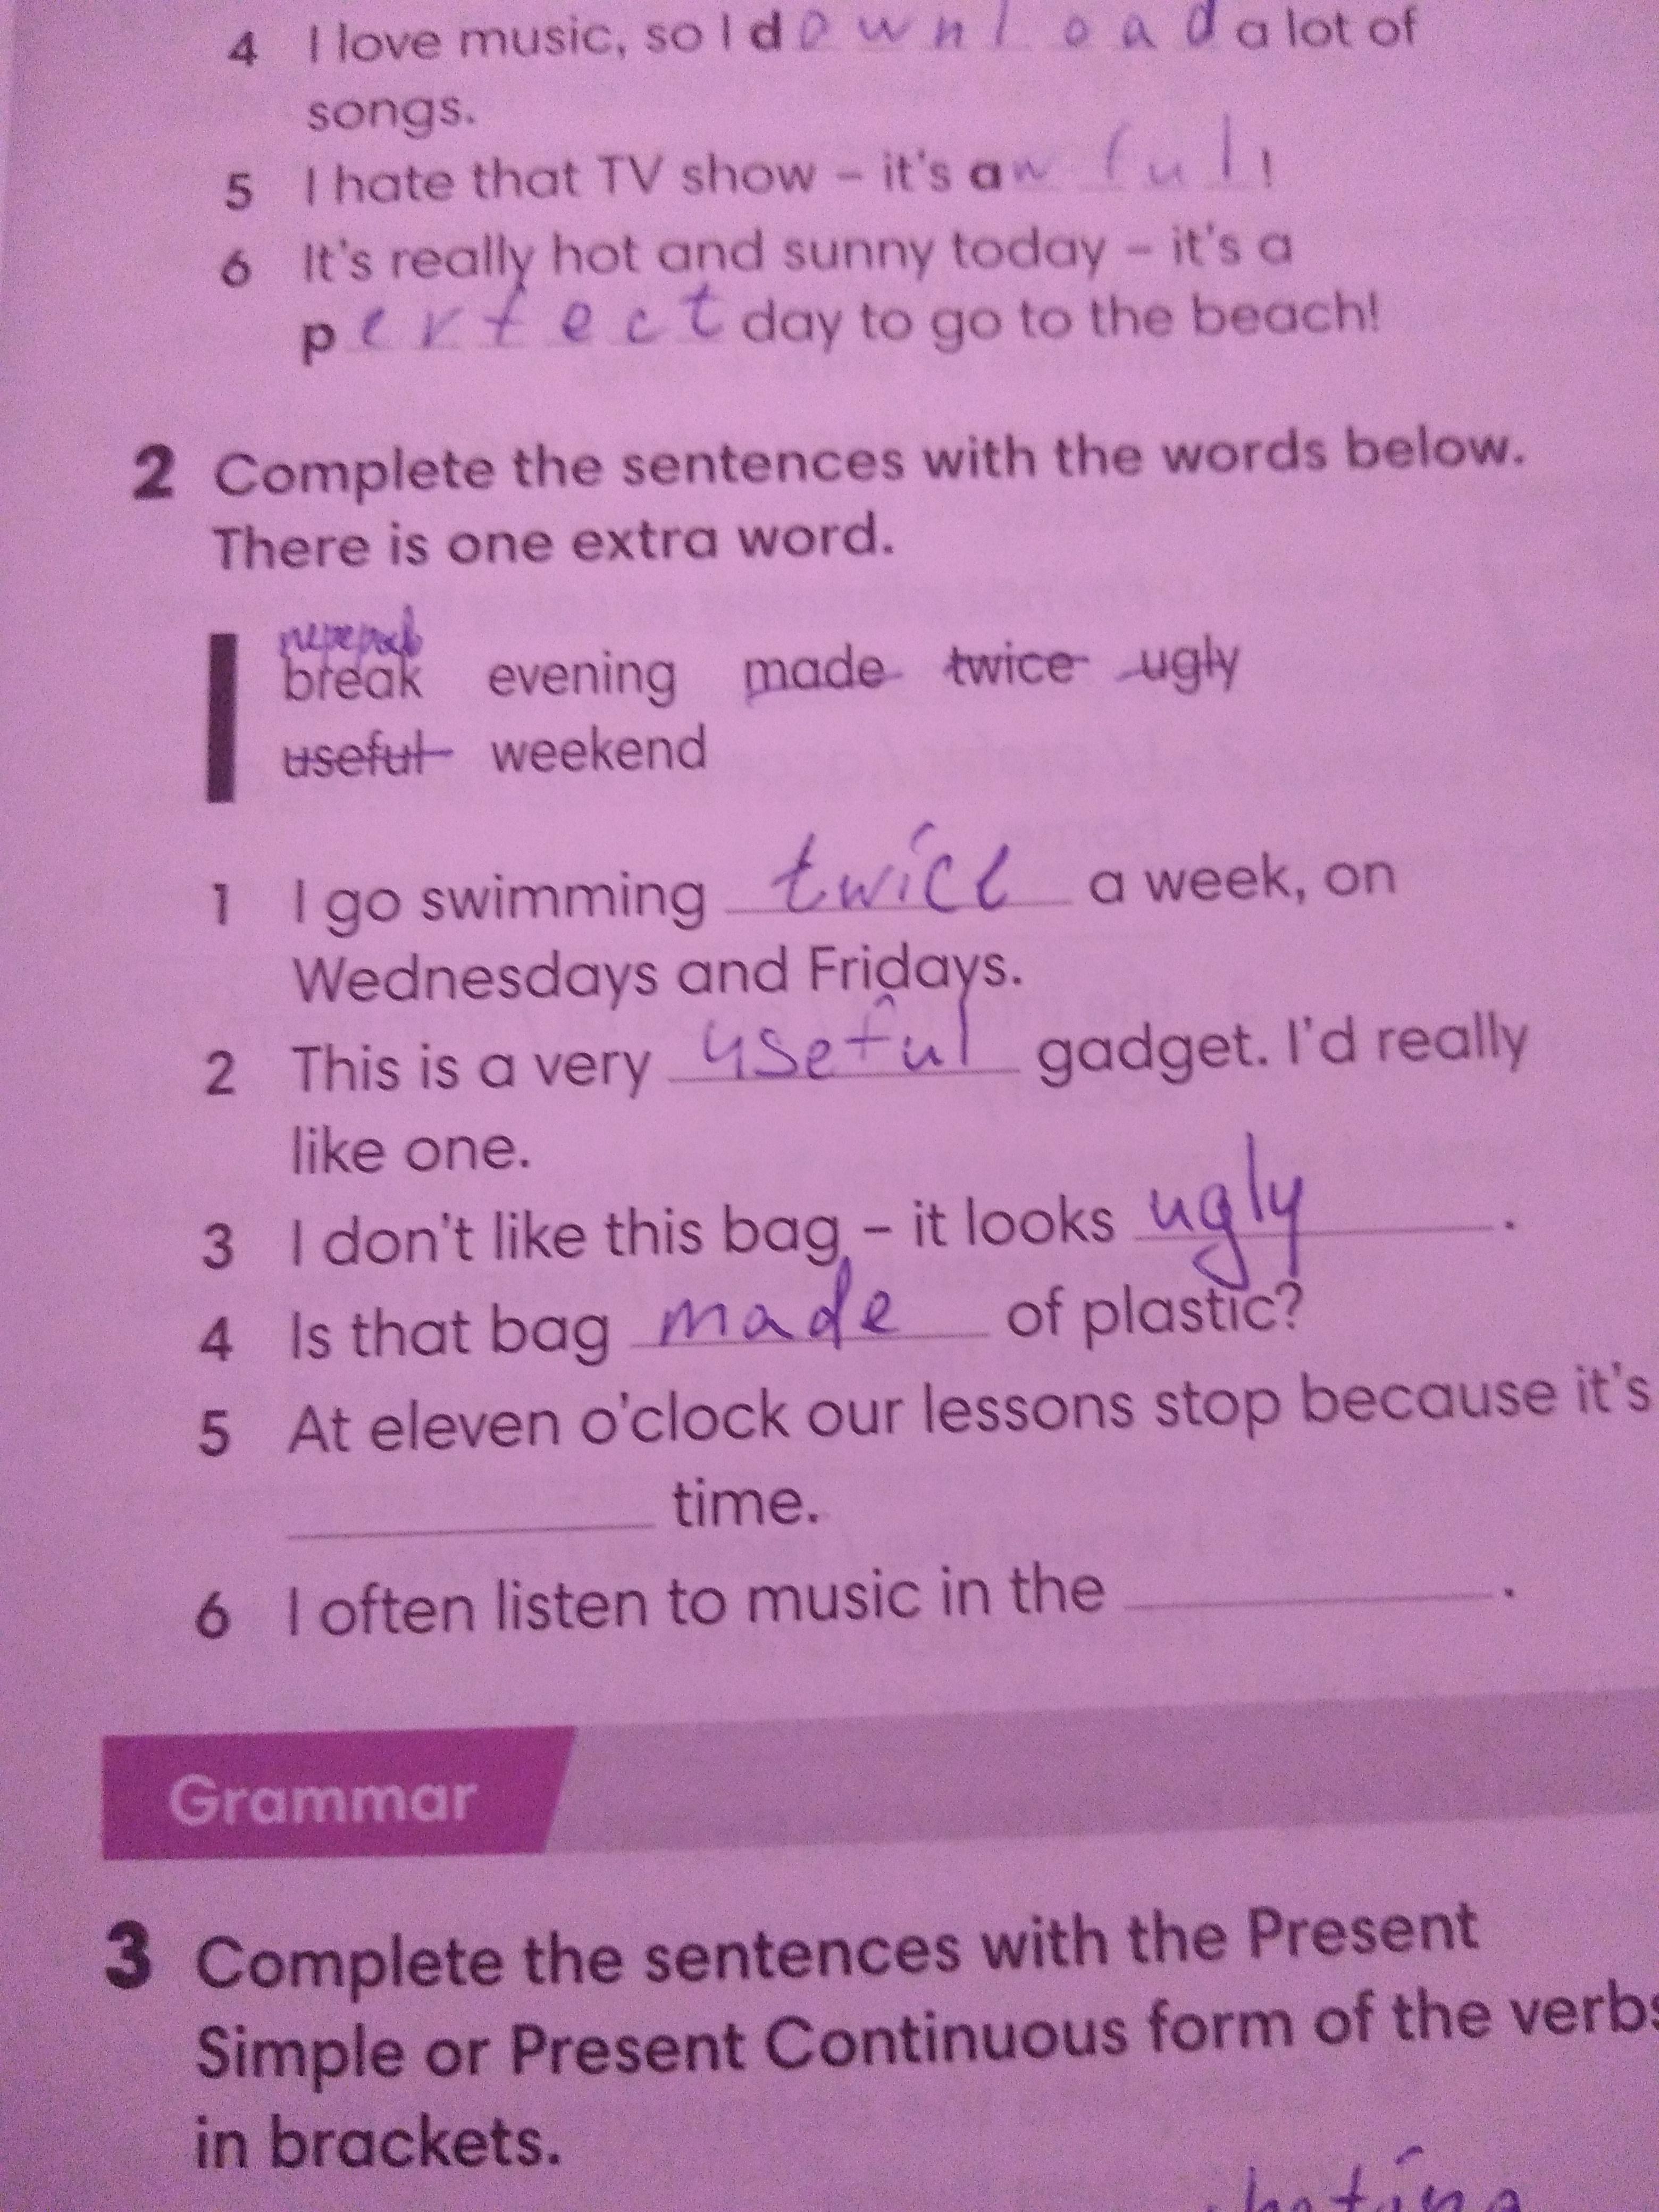 4 I love music, so I download a lot of
songs.
5 I hate that TV show – it's awful!
6 It's really hot and sunny today – it's a
perfect day to go to the beach!
2 Complete the sentences with the words below.
There is one extra word.
break evening made twice ugly
useful weekend
1 I go swimming twice a week, on
Wednesdays and Fridays.
2 This is a very useful gadget. I'd really
like one.
3 I don't like this bag – it looks ugly.
4 Is that bag made of plastic?
5 At eleven o'clock our lessons stop because it's
time.
6 I often listen to music in the .
Grammar
3 Complete the sentences with the Present
Simple or Present Continuous form of the verbs
in brackets.